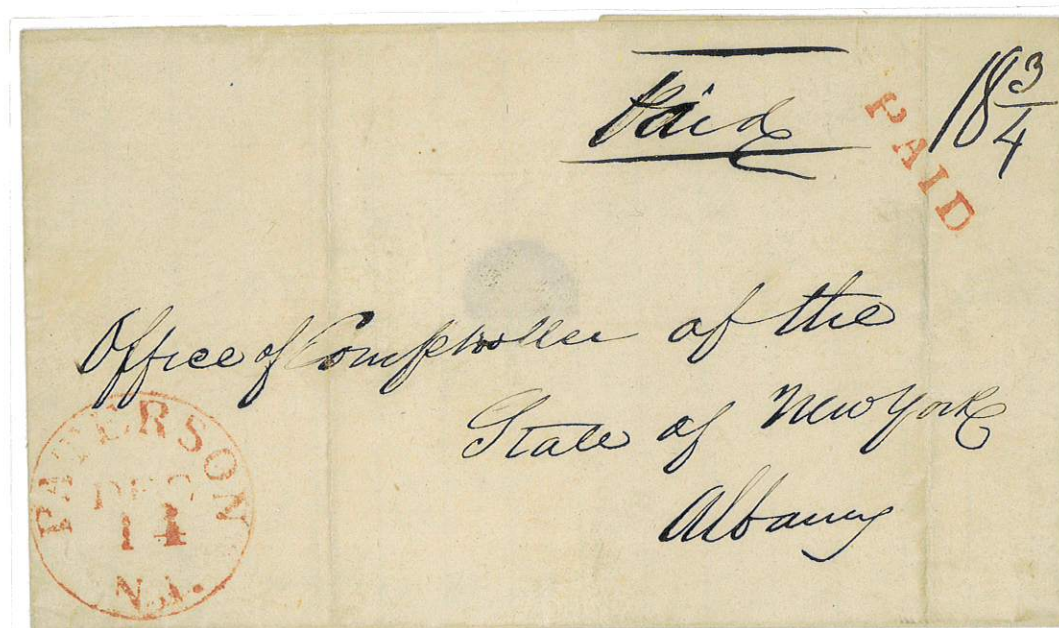 Paid
PAID
18 3/4
Office of Comptroller of the
State of New York
Albany
PATERSON
DEC
14
N.J.